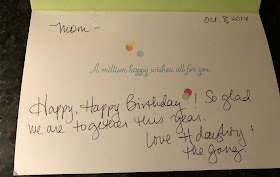 Oct. 8, 2014
Mom -
A million happy wishes, all for you.
Happy, Happy Birthday! So glad
we are together this year.
Love
the gang.